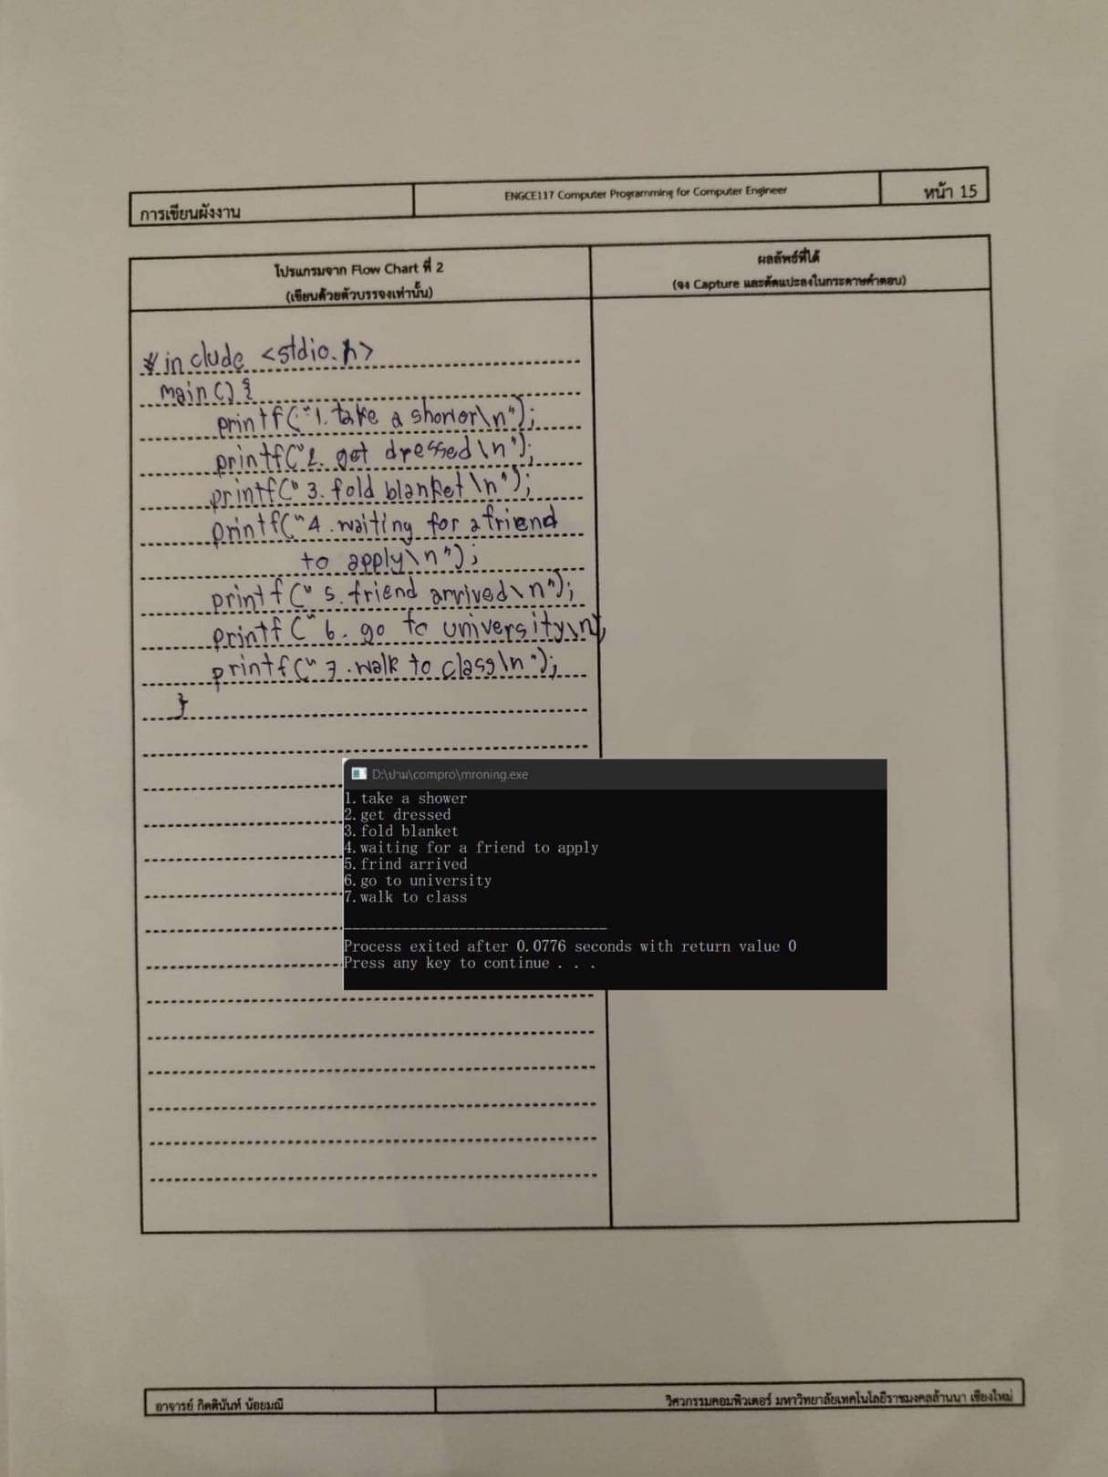 การเขียนผังงาน
ENGCE117 Computer Programming for Computer Engineer
หน้า 15
โปรแกรมจาก Flow Chart ที่ 2
(เขียนด้วยตัวบรรจงเท่านั้น)
ผลลัพธ์ที่ได้
(จง Capture และตัดแปะลงในกระดาษคำตอบ)
#include <stdio.h>
main() {
printf("1. take a shower\n");
printf("2. get dressed\n");
printf("3. fold blanket\n");
printf("4. waiting for a friend
to apply\n");
printf("5. friend arrived\n");
printf("6. go to university\n");
printf("7. walk to class\n");
}
D:\ปาม\compro\mroning.exe
1.take a shower
2.get dressed
3.fold blanket
4.waiting for a friend to apply
5.frind arrived
6.go to university
7.walk to class
--------------------------------
Process exited after 0.0776 seconds with return value 0
Press any key to continue . . .
อาจารย์ กิตตินันท์ น้อยมณี
วิศวกรรมคอมพิวเตอร์ มหาวิทยาลัยเทคโนโลยีราชมงคลล้านนา เชียงใหม่